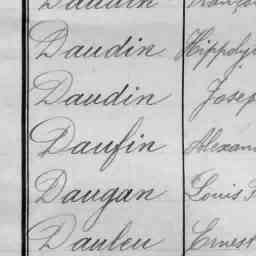 Daudin
Daudin Hippoly
Daudin Josep
Daufin Alexan
Daugan Louis
Dauleu Ernest